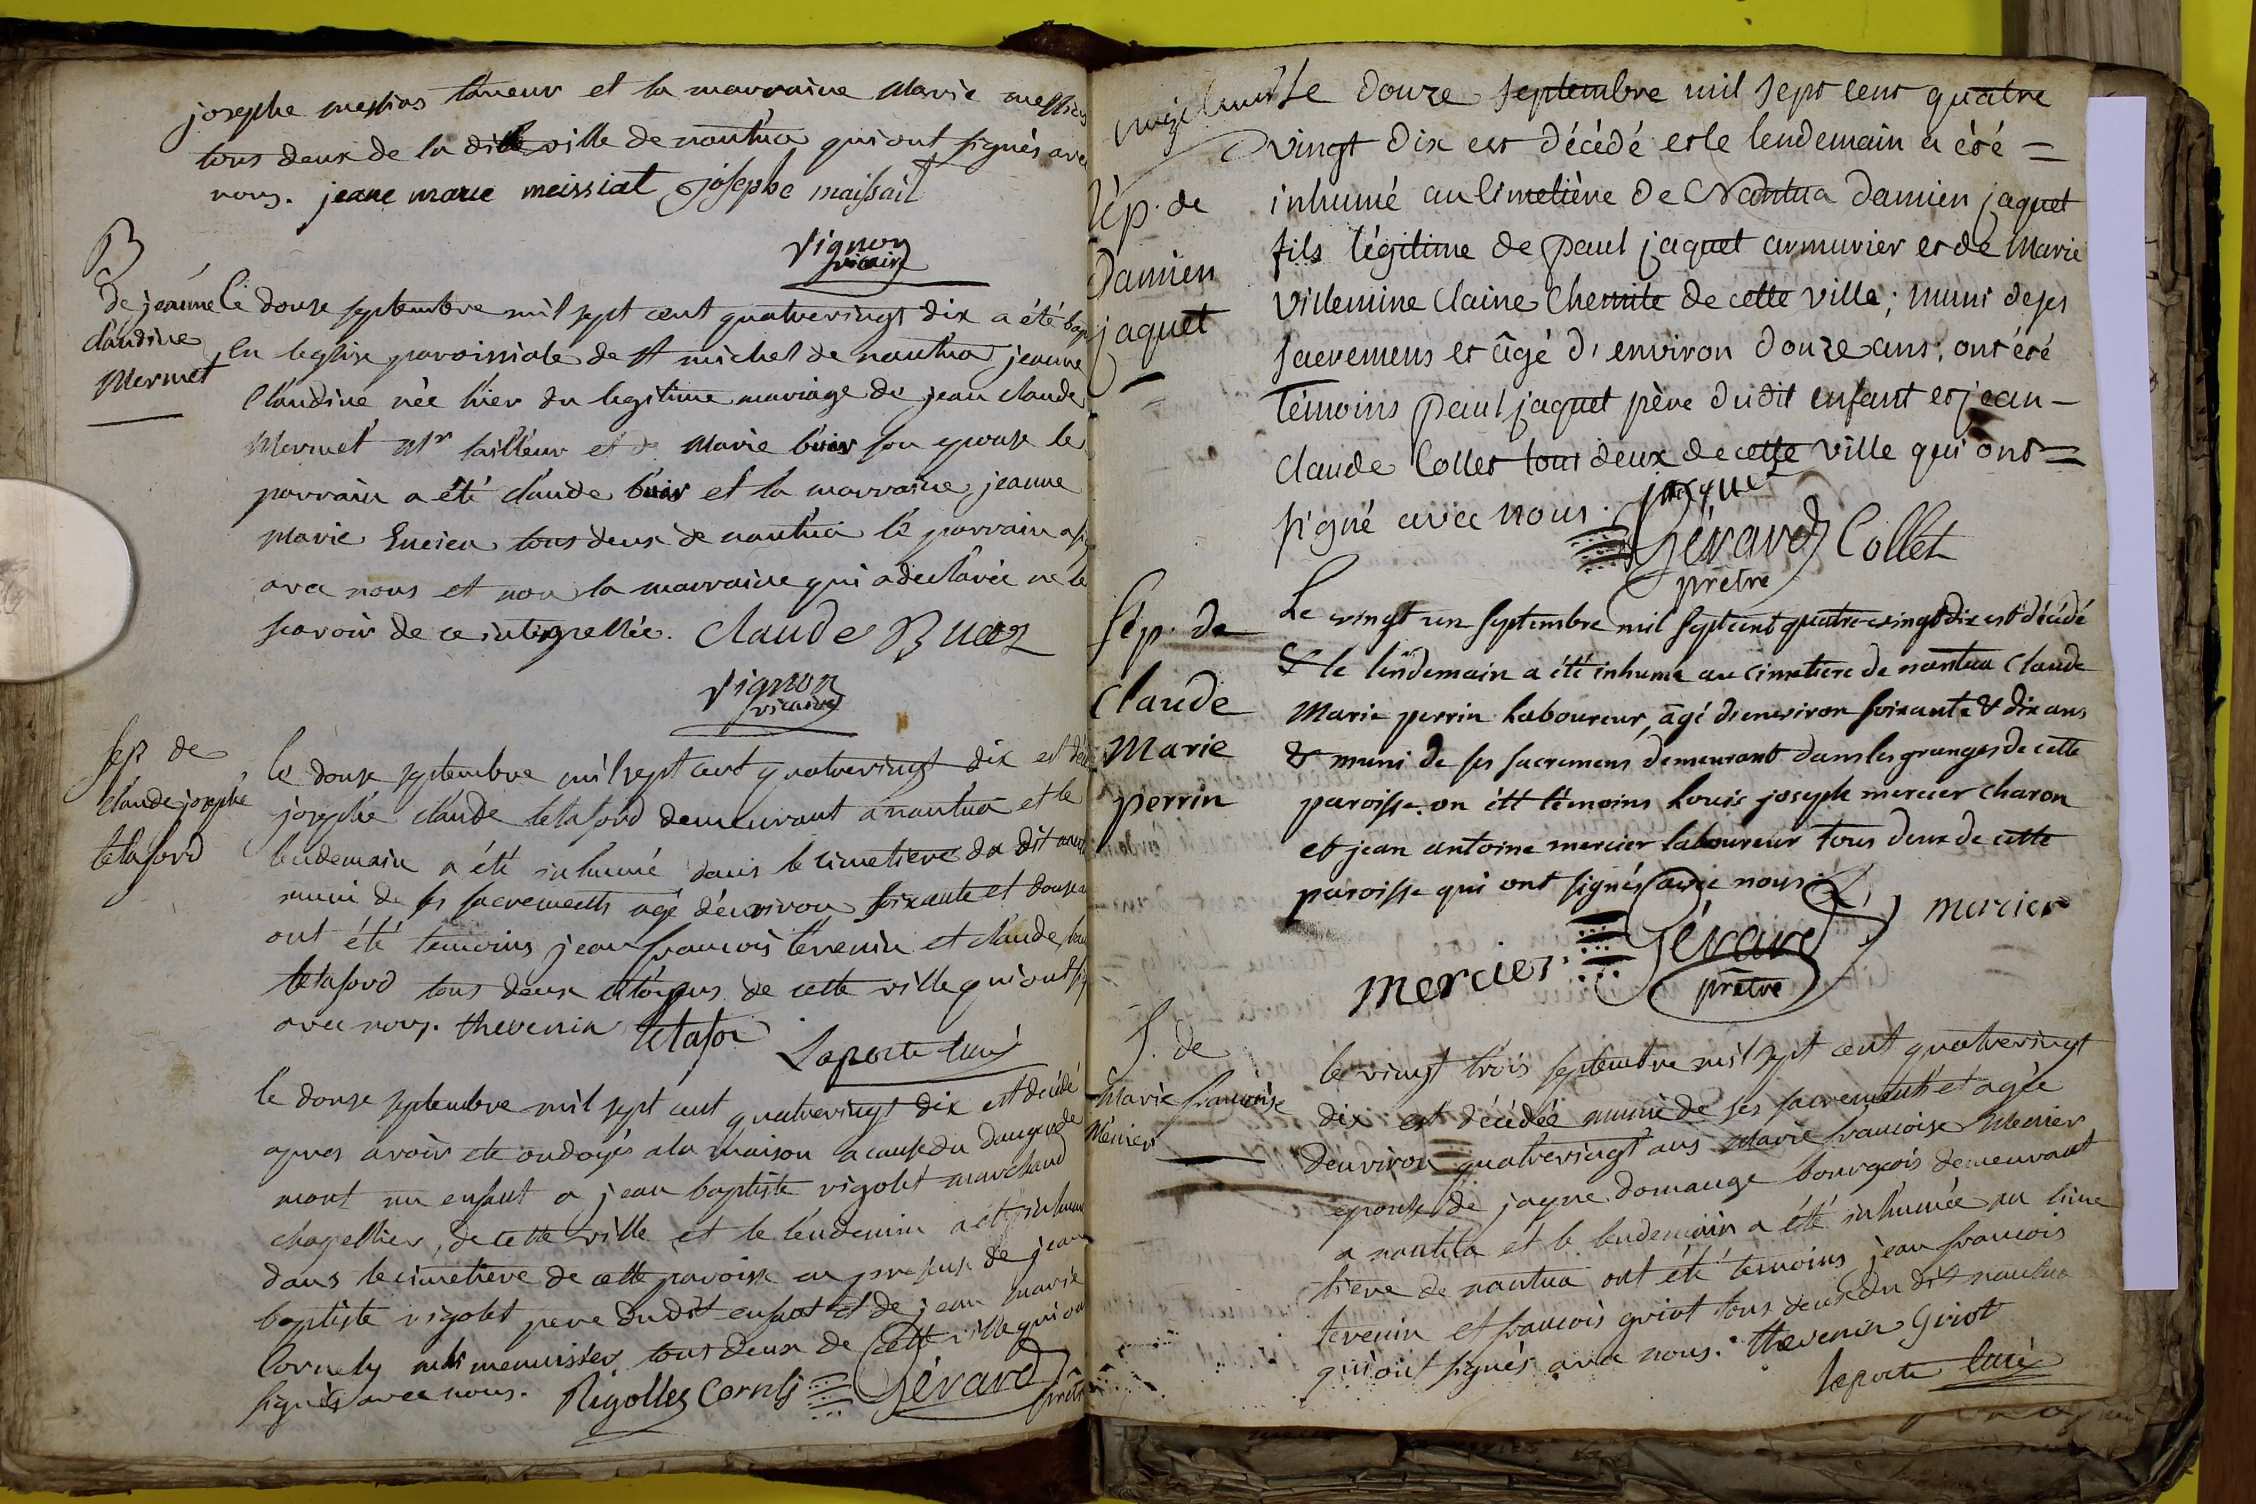 josephe messias taneur et la marraine Marie
tous deux de la dite ville de nantua qui ont signés avec
nous. jeane marie meissiat josephe maissait
Vignon
vicaire
B
de jeanne
claudine
Mermet
Le douse septembre mil sept cent quatrevingt dix a été bap
en leglise paroissiale de st michel de nantua jeanne
Claudine née hier du legitime mariage de jean claude
Mermet Mr tailleur et de Marie buis son epouse le
parrain a été claude buis et la marraine jeanne
Marie tous deux de nantua le parrain a
avec nous et non la marraine qui a declarée ne le
scavoir de ce
claude Buez
Vignon
vicaire
Sep de
claude josephe
tetaford
le douse septembre mil sept cent quatrevingt dix est
josephe claude tetaford demeurant a nantua et le
lendemain a été inhumé dans le cimetiere du dit
muni de ses sacrements agé d'environ soixante et douse
ont été temoins jean françois tevenin et claude
tetaford tous deux citoyens de cette ville qui ont
avec nous. thevenin tetafor
Laporte curé
le douse septembre mil sept cent quatrevingt dix est decedé
apres avoir ete ondoyés a la maison a cause du danger de
mort un enfant a jean baptiste rigolet marchand
chapellier, de cette ville et le lendemain a été inhumé
dans le cimetiere de cette paroisse en presence de jean
baptiste rigolet pere dudit enfant et de jean marie
Cornely menuisier tous deux de cette ville qui ont
signés avec nous. Rigollez Cornely Gérard
prêtre
Le douze septembre mil sept cent quatre
vingt dix est décédé et le lendemain a été =
inhumé au Cimetière de Nantua Damien jaquet
fils légitime de paul jaquet armurier et de Marie
Villemine Claine Chemite de cette ville; muni de ses
sacremens et âgé d'environ douze ans; ont été
Témoins paul jaquet père dudit enfant et jean-
claude Collet tous deux de cette ville qui ont =
signé avec nous. jacquet
Gérard Collet
prêtre
Sép. de
Damien
jaquet
Sép. de
Claude
Marie
perrin
Le vingt un septembre mil sept cent quatre vingt dix est décédé
& le lendemain a été inhumé au cimetiere de nantua Claude
Marie perrin laboureur, âgé d'environ soixante & dix ans
& muni de ses sacremens demeurant dans les granges de cette
paroisse. on été témoins Louis joseph mercier charon
et jean antoine mercier laboureur tous deux de cette
paroisse qui ont signés avec nous.
mercier Gérard mercier
prêtre
S. de
Marie françoise
Menier
le vingt trois septembre mil sept cent quatrevingt
dix est décédée munie de ses sacrements et agée
d'environ quatrevingt ans Marie françoise Menier
epouse de jayne domange bourgeois demeurant
a nantua et le lendemain a été inhumée au cime
tiere de nantua ont été temoins jean françois
tevenin et françois griot tous deux du dit nantua
qui ont signés avec nous. thevenin Griot
Laporte Curé